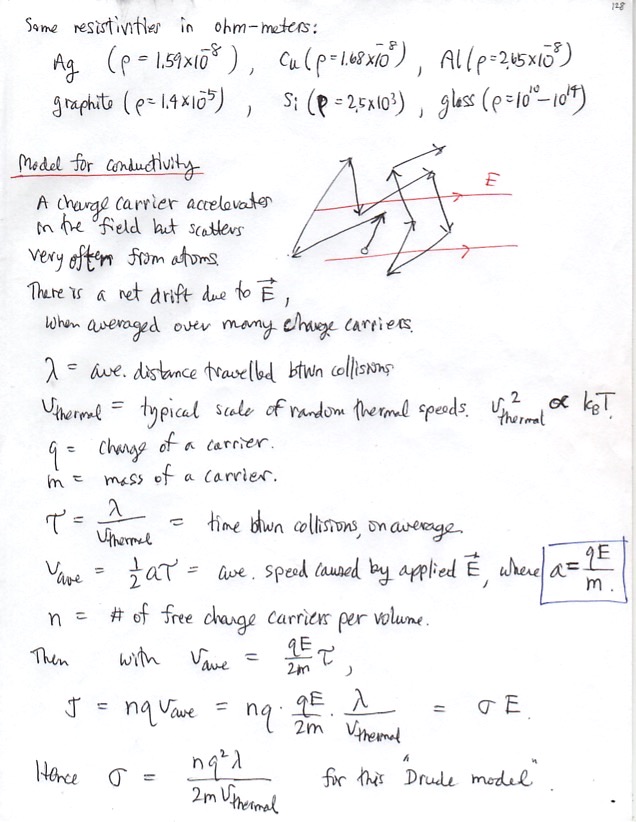 128
Some resistivities in ohm-meters:
Ag (ρ = 1.59×10⁻⁸), Cu (ρ = 1.68×10⁻⁸), Al (ρ = 2.65×10⁻⁸)
graphite (ρ = 1.4×10⁻⁵), Si (ρ = 2.5×10³), glass (ρ = 10¹⁰–10¹⁴)
Model for conductivity
E
A charge carrier accelerates
in the field but scatters
very often from atoms.
There is a net drift due to E⃗,
when averaged over many charge carriers.
λ = ave. distance travelled btwn collisions
v_thermal = typical scale of random thermal speeds. v²_thermal ∝ k_BT.
q = charge of a carrier.
m = mass of a carrier.
τ = λ/v_thermal = time btwn collisions, on average.
v_ave = ½aτ = ave. speed caused by applied E⃗, where a = qE/m.
n = # of free charge carriers per volume.
Then with v_ave = qE/2m τ,
J = nqv_ave = nq · qE/2m · λ/v_thermal = σE.
Hence σ = nq²λ/2mv_thermal for this "Drude model".